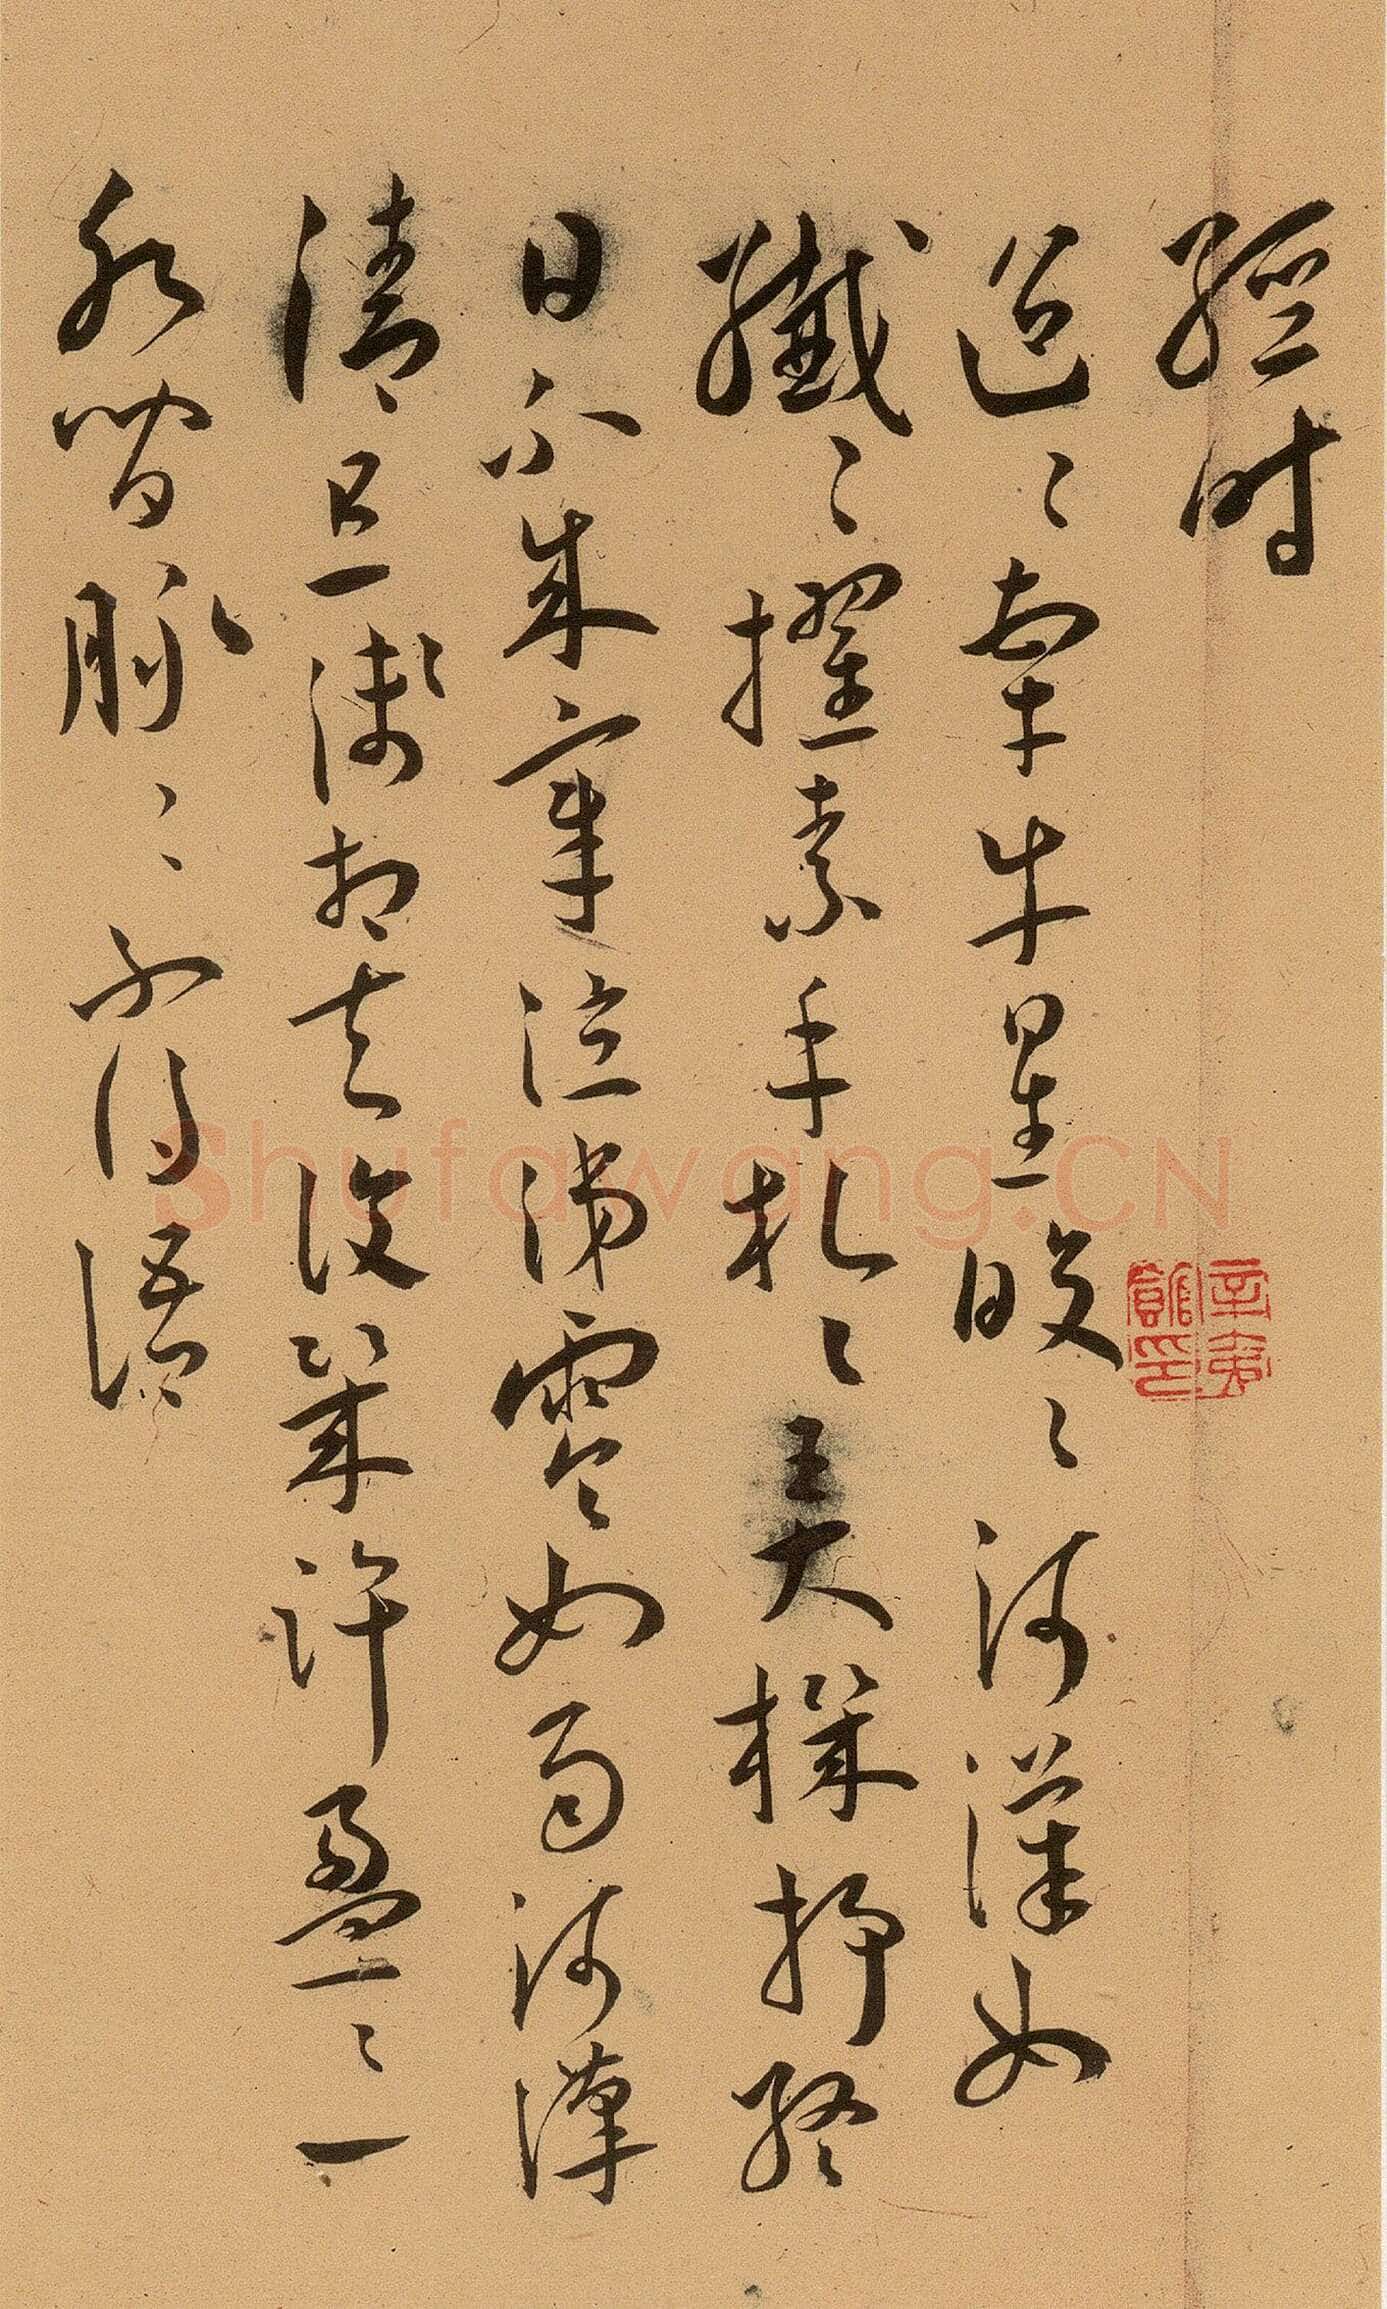 經時
迢〻牽牛星皎〻河漢女
纖〻擢素手札〻弄機杼終
日不成章泣涕零如雨河漢
清且淺相去復幾許盈〻一
水間脉〻不得語
Shufawang.CN